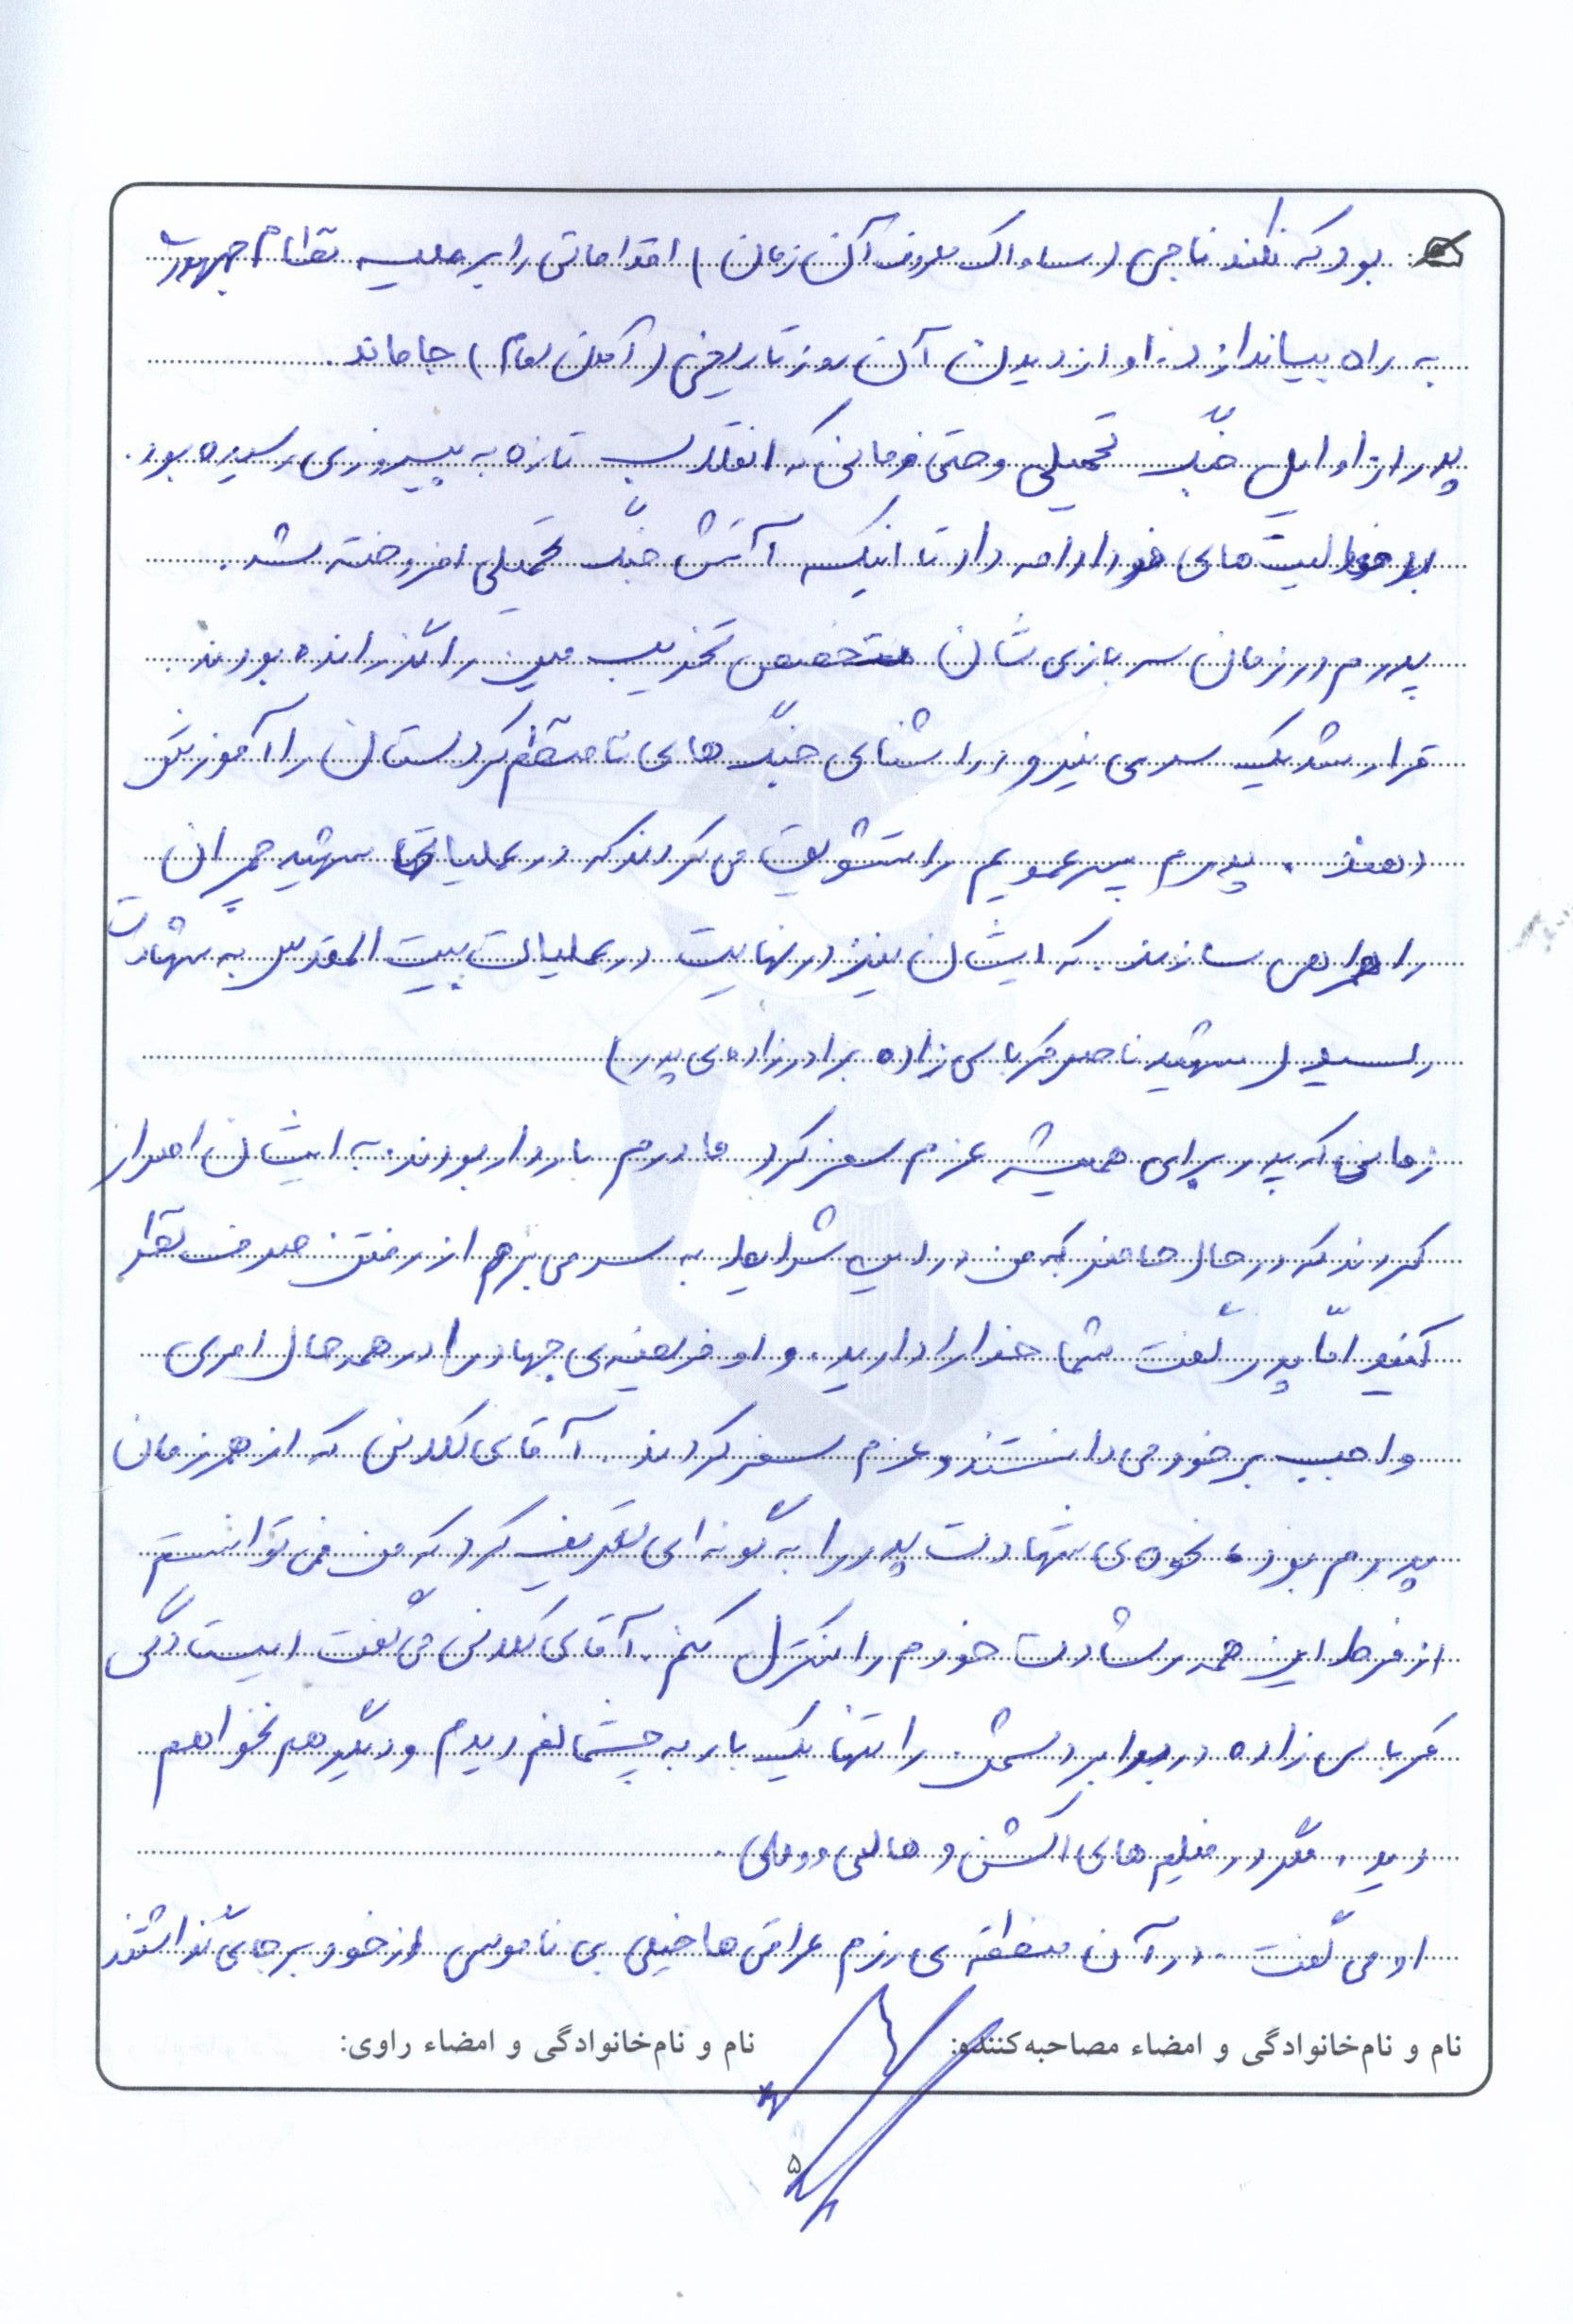 بود که نکند ناجی (ساواک معروف آن زمان) اقداماتی را بر علیه نظام جمهوری
به راه بیاندازد. او از دیدن آن روز تاریخی (آمدن امام) جا ماند.
پدر از اوایل جنگ تحمیلی و حتی زمانی که انقلاب تازه به پیروزی رسیده بود.
فعالیت های خود ادامه داد تا اینکه آتش جنگ تحمیلی افروخته شد.
پدرم در زمان سربازی شان تخصص تخریب مین را گذرانده بودند.
قرار شد یک سری نیرو در راشنای جنگ های نامنظم کردستان را آموزش
دهند. پدرم پسرعمویم را تشویق می کردند که در عملیاتها شهید چمران
را همراهی سازند. که ایشان نیز در نهایت در عملیات بیت المقدس به شهادت
رسید (شهید ناصر کرباسی زاده برادرزاده ی پدر)
زمانی که پدر برای همیشه عزم سفر کرد مادرم باردار بودند. به ایشان اصرار
کردند که در حال حاضر که من در این شرایط به سر می برم از رفتن صرف نظر
کنید امّا پدر گفت شما خدا را دارید. و او فریضه ی جهاد را در همه حال امری
واجب بر خود می دانستند و عزم سفر کردند. آقای کلانی که از همرزمان
پدرم بود، نحوه ی شهادت پدر را به گونه ای تعریف کرد که من نمی توانستم
از فرط این همه رشادت خودم را کنترل کنم. آقای کلانی می گفت ایستادگی
کرباسی زاده در برابر دشمن را تنها یک بار به چشمانم دیدم و دیگر هم نخواهم
دید. مگر در فیلم های اکشن و هالی وودی.
او می گفت. در آن منطقه ی رزم عراقی ها خیلی بی ناموسی از خود بر جای گذاشتند
نام و نام‌خانوادگی و امضاء مصاحبه‌کننده:
نام و نام‌خانوادگی و امضاء راوی:
۵